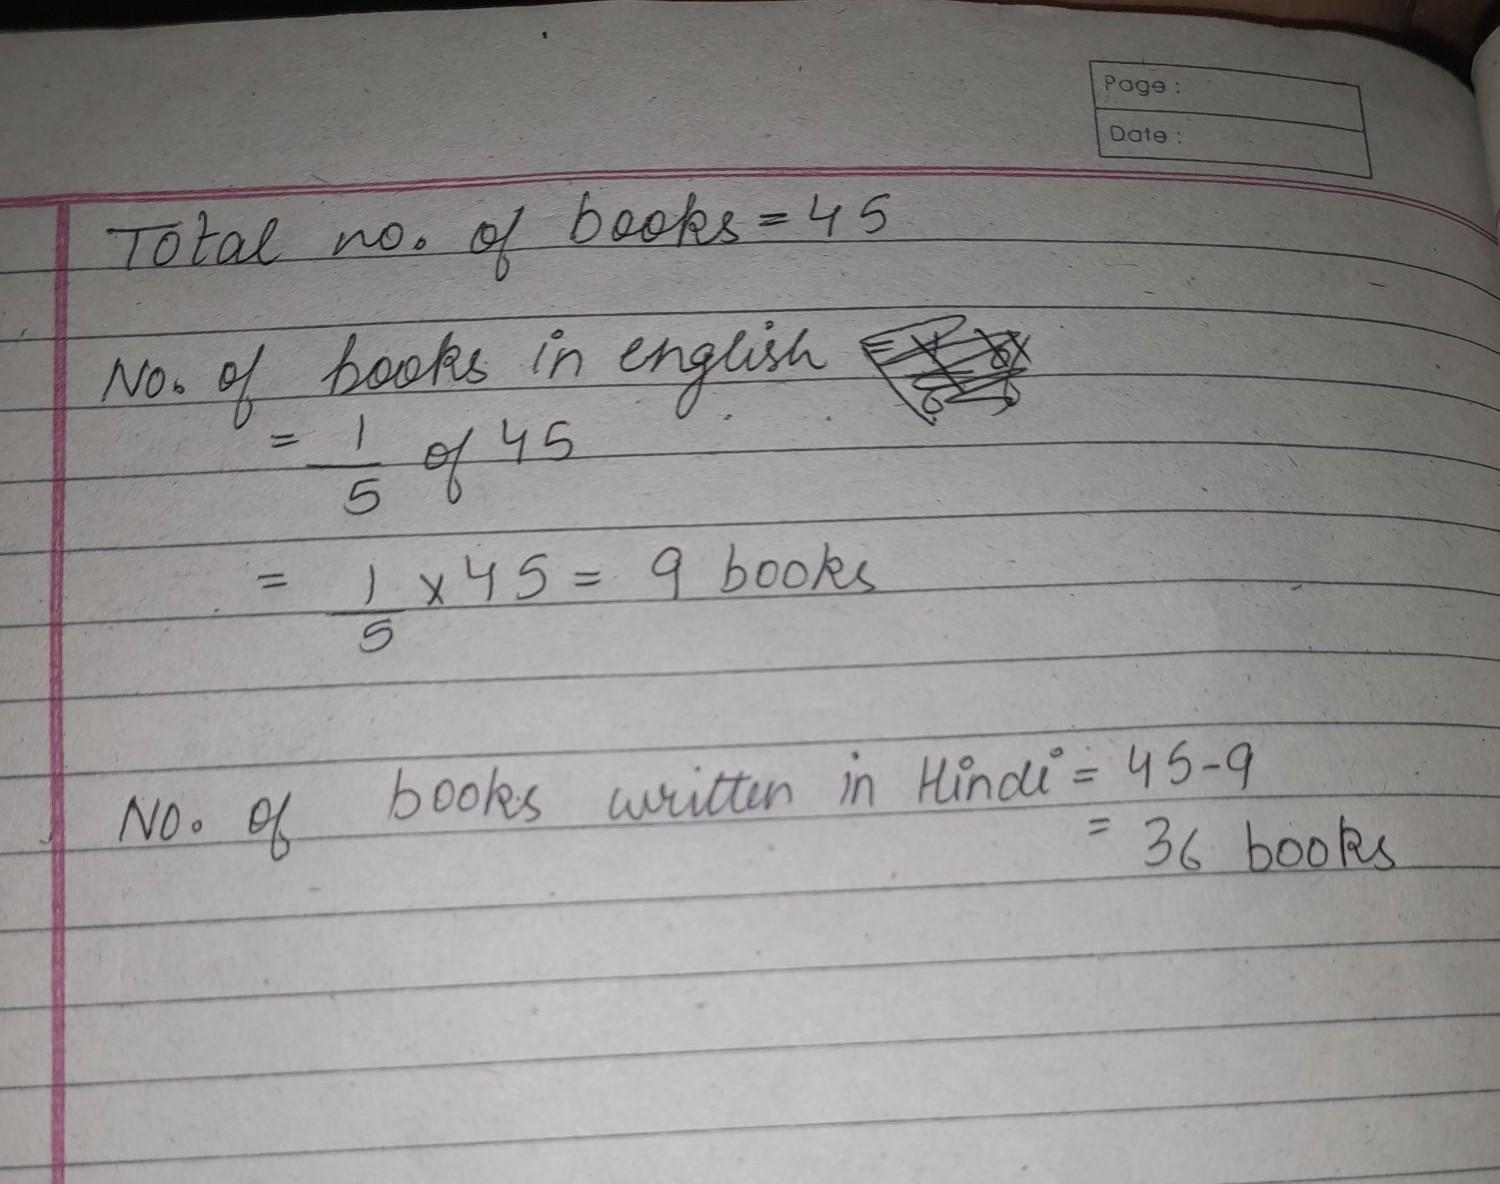 Page :
Date :
Total no. of books = 45
No. of books in english
= 1/5 of 45
= 1/5 x 45 = 9 books
No. of books written in Hindi = 45-9
= 36 books